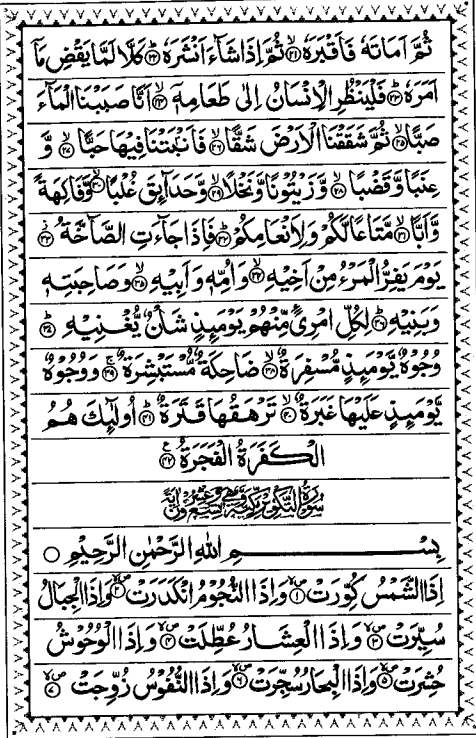 ثُمَّ اَمَاتَهٗ فَاَقْبَرَهٗ ﴿۲۱﴾ ثُمَّ اِذَا شَآءَ اَنْشَرَهٗ ﴿۲۲﴾ كَلَّا لَمَّا يَقْضِ مَاۤ
اَمَرَهٗ ﴿۲۳﴾ فَلْيَنْظُرِ الْاِنْسَانُ اِلٰى طَعَامِهٖۤ ﴿۲۴﴾ اَنَّا صَبَبْنَا الْمَآءَ
صَبًّا ﴿۲۵﴾ ثُمَّ شَقَقْنَا الْاَرْضَ شَقًّا ﴿۲۶﴾ فَاَنْۢبَتْنَا فِيْهَا حَبًّا ﴿۲۷﴾ وَّ
عِنَبًا وَّقَضْبًا ﴿۲۸﴾ وَّزَيْتُوْنًا وَّنَخْلًا ﴿۲۹﴾ وَّحَدَآئِقَ غُلْبًا ﴿۳۰﴾ وَّفَاكِهَةً
وَّاَبًّا ﴿۳۱﴾ مَّتَاعًا لَّكُمْ وَلِاَنْعَامِكُمْ ﴿۳۲﴾ فَاِذَا جَآءَتِ الصَّآخَّةُ ﴿۳۳﴾
يَوْمَ يَفِرُّ الْمَرْءُ مِنْ اَخِيْهِ ﴿۳۴﴾ وَاُمِّهٖ وَاَبِيْهِ ﴿۳۵﴾ وَصَاحِبَتِهٖ
وَبَنِيْهِ ﴿۳۶﴾ لِكُلِّ امْرِئٍ مِّنْهُمْ يَوْمَئِذٍ شَاْنٌ يُّغْنِيْهِ ﴿۳۷﴾
وُجُوْهٌ يَّوْمَئِذٍ مُّسْفِرَةٌ ﴿۳۸﴾ ضَاحِكَةٌ مُّسْتَبْشِرَةٌ ﴿۳۹﴾ وَوُجُوْهٌ
يَّوْمَئِذٍ عَلَيْهَا غَبَرَةٌ ﴿۴۰﴾ تَرْهَقُهَا قَتَرَةٌ ﴿۴۱﴾ اُولٰٓئِكَ هُمُ
الْكَفَرَةُ الْفَجَرَةُ ﴿۴۲﴾
سُوْرَةُ التَّكْوِيْرِ مَكِّيَّةٌ وَّهِيَ تِسْعٌ وَّعِشْرُوْنَ اٰيَةً
بِسْمِ اللّٰهِ الرَّحْمٰنِ الرَّحِيْمِ ○
اِذَا الشَّمْسُ كُوِّرَتْ ﴿۱﴾ وَاِذَا النُّجُوْمُ انْكَدَرَتْ ﴿۲﴾ وَاِذَا الْجِبَالُ
سُيِّرَتْ ﴿۳﴾ وَاِذَا الْعِشَارُ عُطِّلَتْ ﴿۴﴾ وَاِذَا الْوُحُوْشُ
حُشِرَتْ ﴿۵﴾ وَاِذَا الْبِحَارُ سُجِّرَتْ ﴿۶﴾ وَاِذَا النُّفُوْسُ زُوِّجَتْ ﴿۷﴾